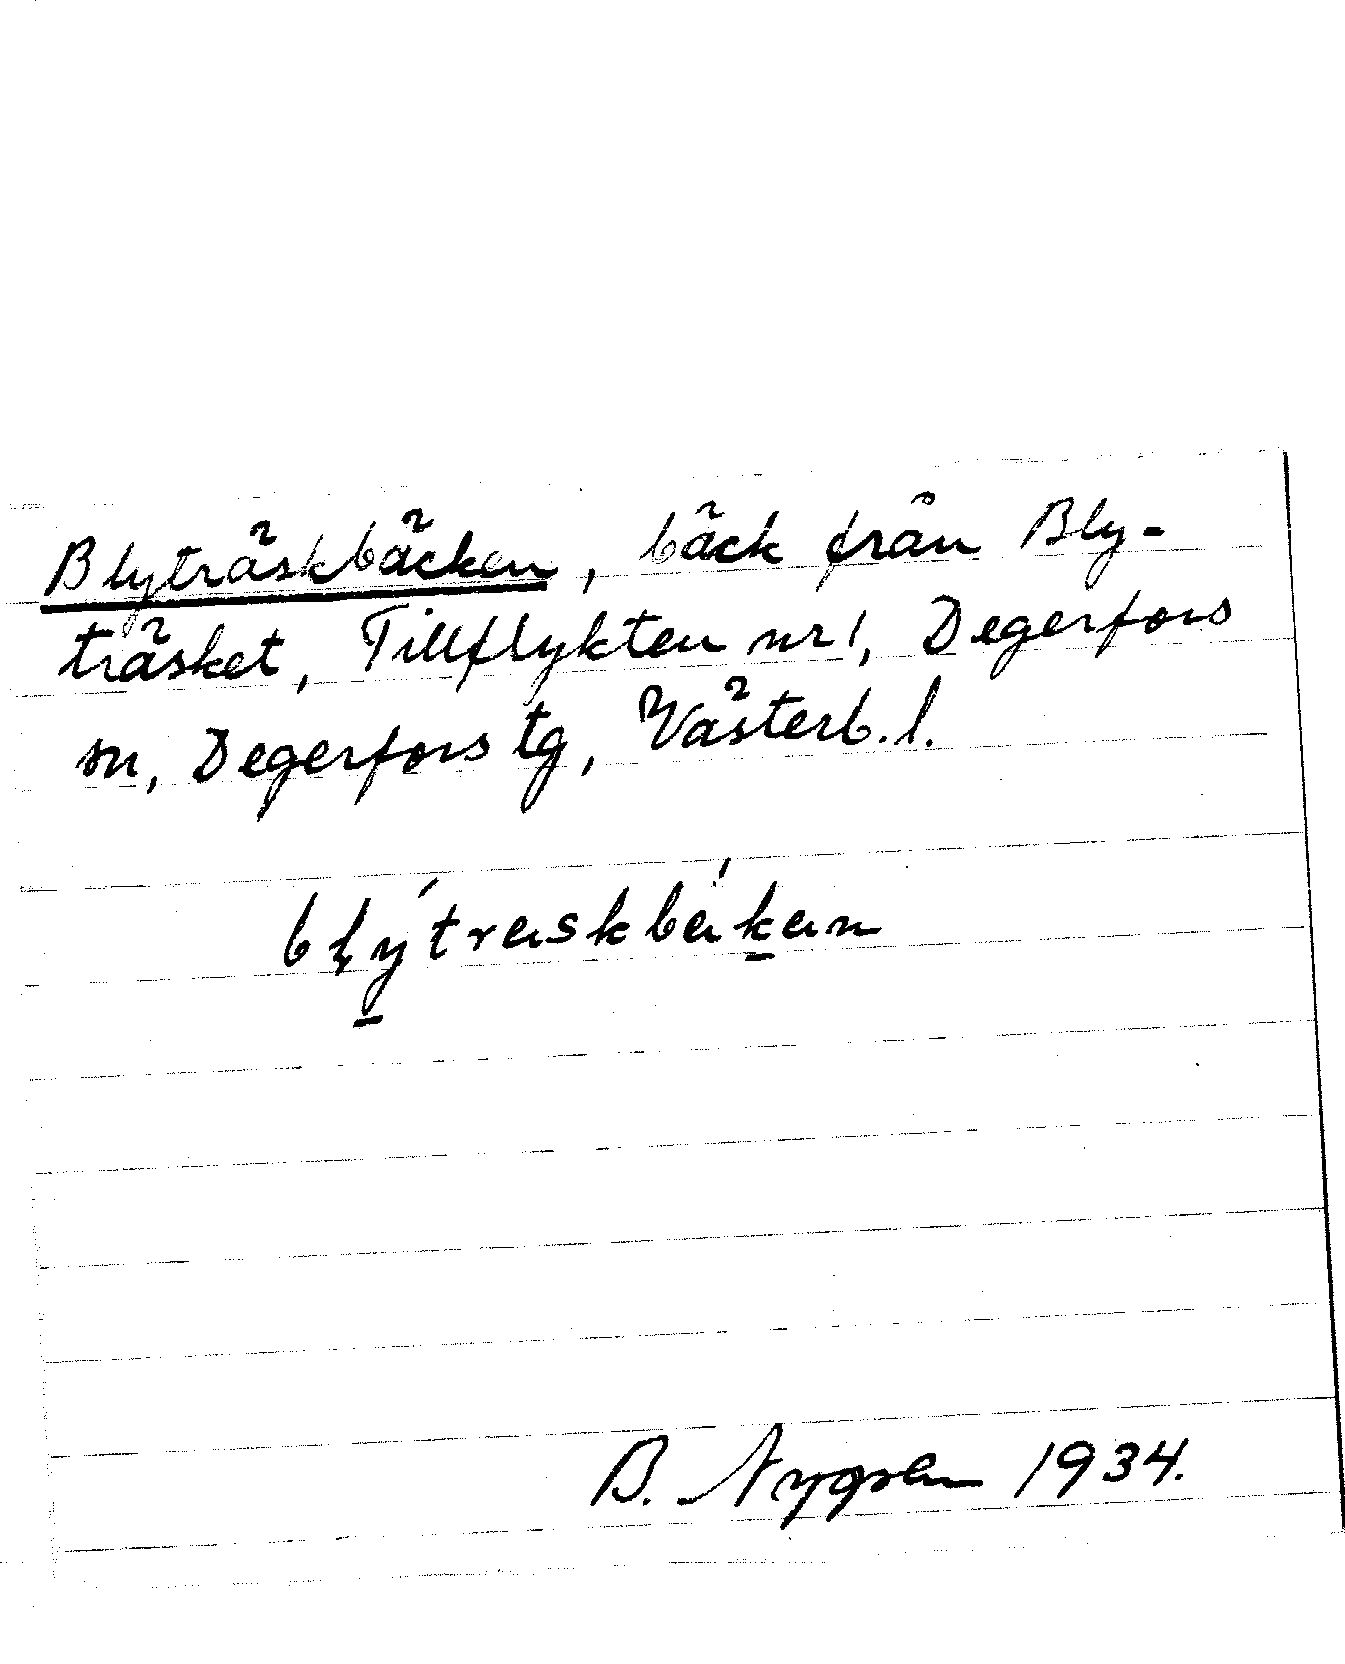 Blyträskbäcken, bäck från Bly-
träsket, Tillflykten nr 1, Degerfors
sn, Degerfors tg, Västerb. l.
B. Nygren 1934.